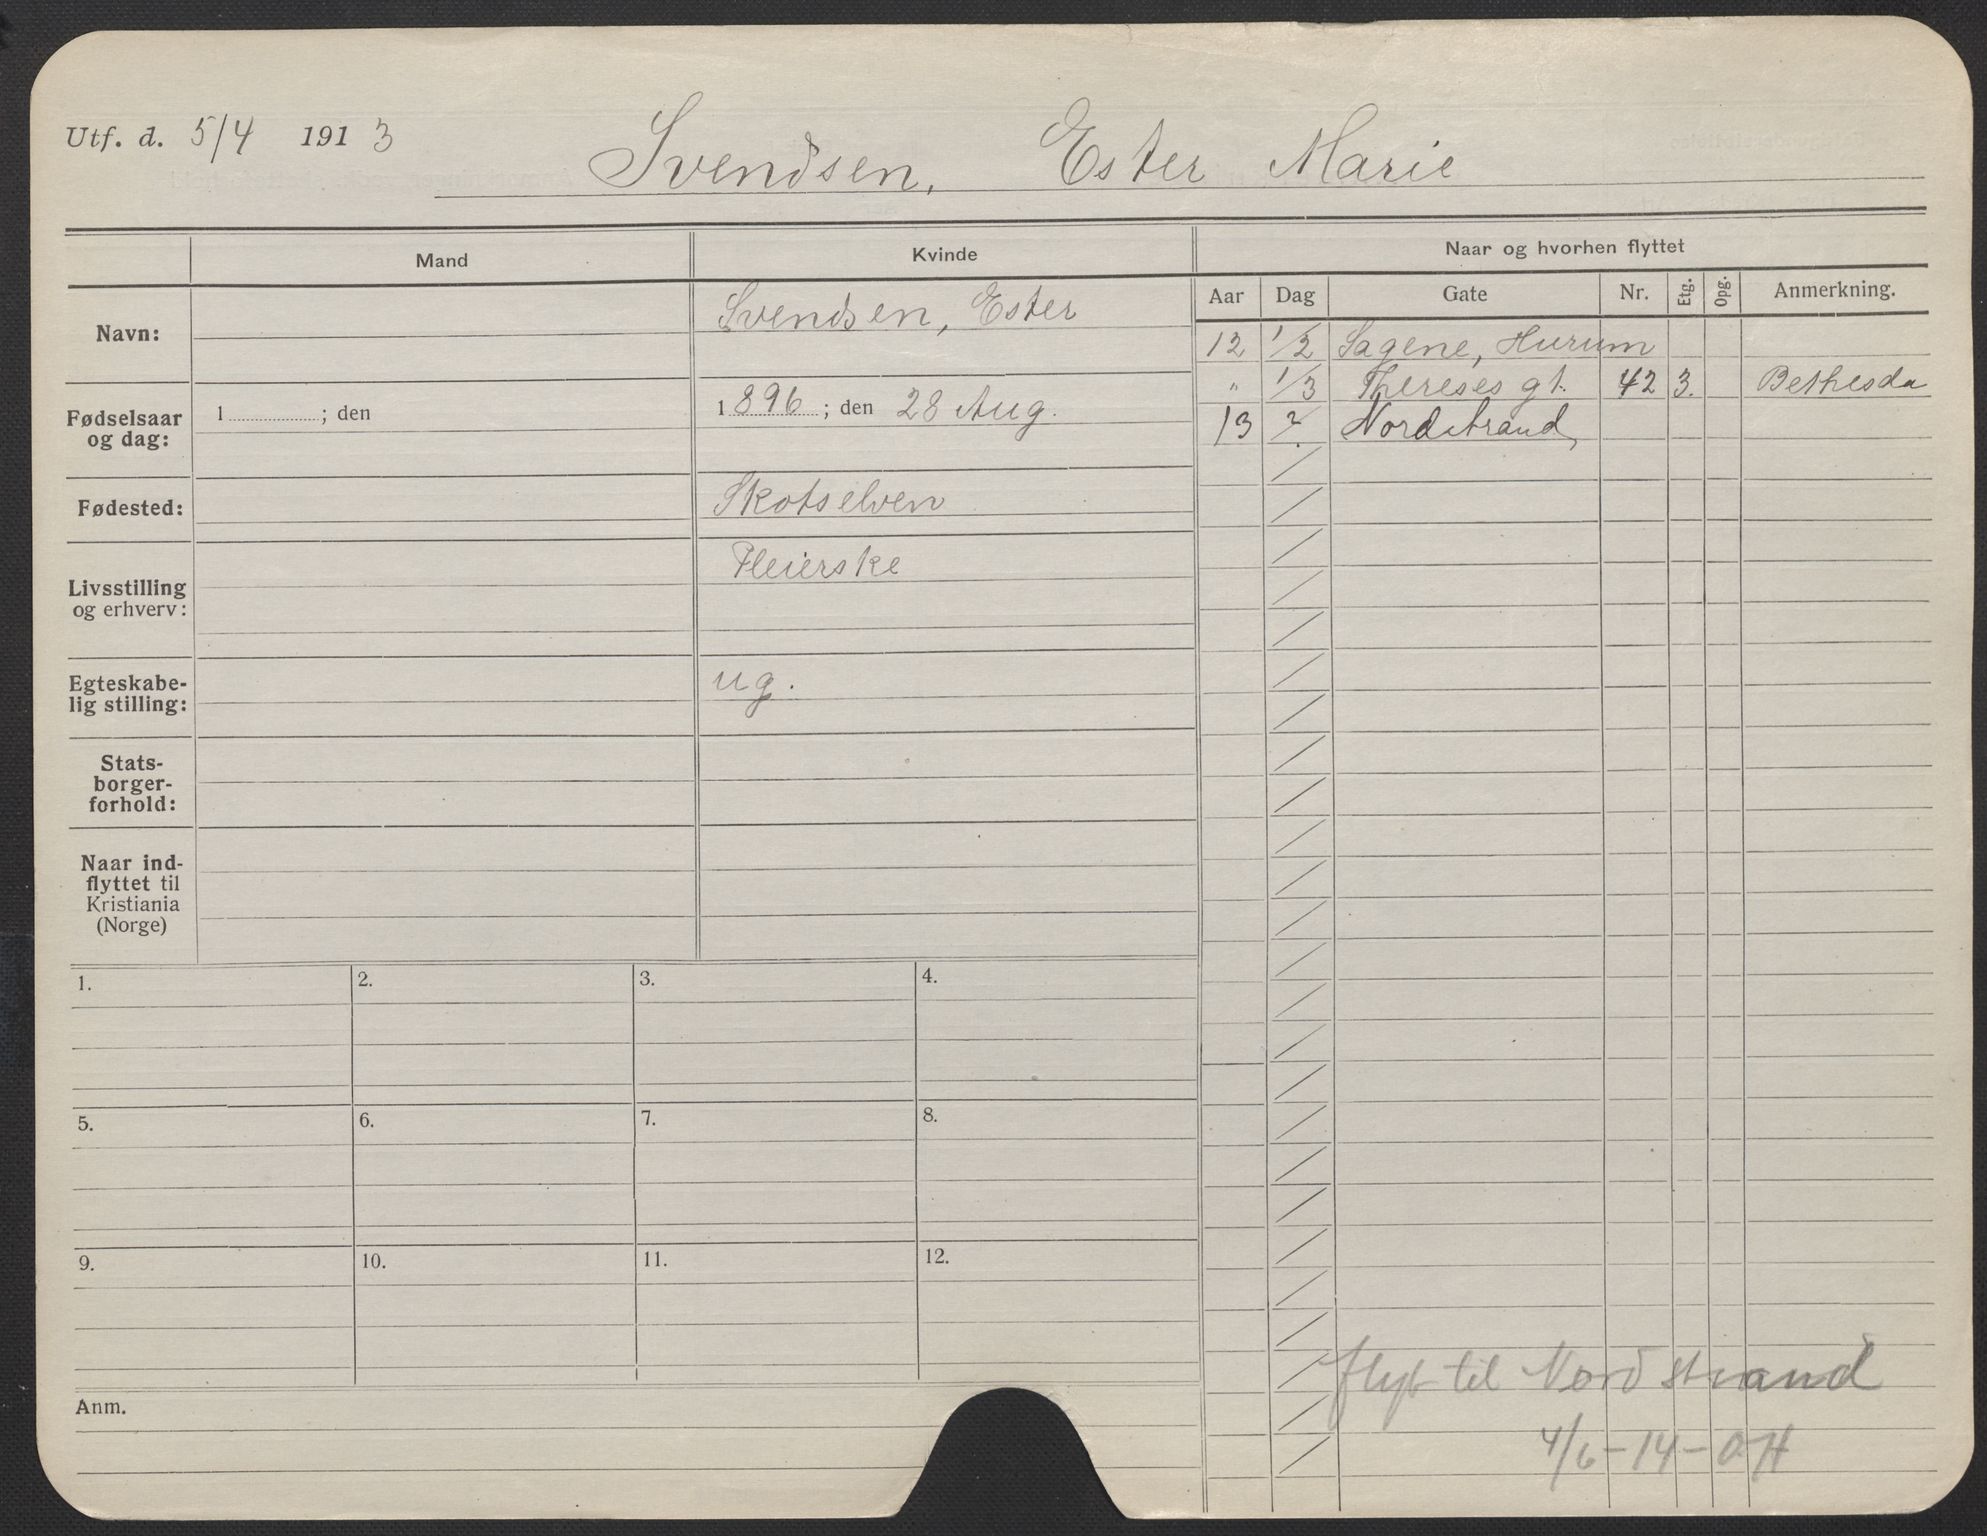 Utf. d. 5/4 1913
Svendsen, Ester Marie
Mand
Kvinde
Naar og hvorhen flyttet
Aar Dag Gate Nr. Etg. Opg. Anmerkning.
Navn:
Svendsen, Ester
12 1/2 Sagene, Hurum
" 1/3 Thereses gt. 42 3. Bethesda
13 ? Nordstrand,
Fødselsaar
og dag:
1 ; den
1896 ; den 28 Aug.
Fødested:
Skotselven
Livsstilling
og erhverv:
Pleierske
Egteskabe-
lig stilling:
ug.
Stats-
borger-
forhold:
Naar ind-
flyttet til
Kristiania
(Norge)
1. 2. 3. 4.
5. 6. 7. 8.
9. 10. 11. 12.
Anm.
flyt til Nordstrand
4/6-14-